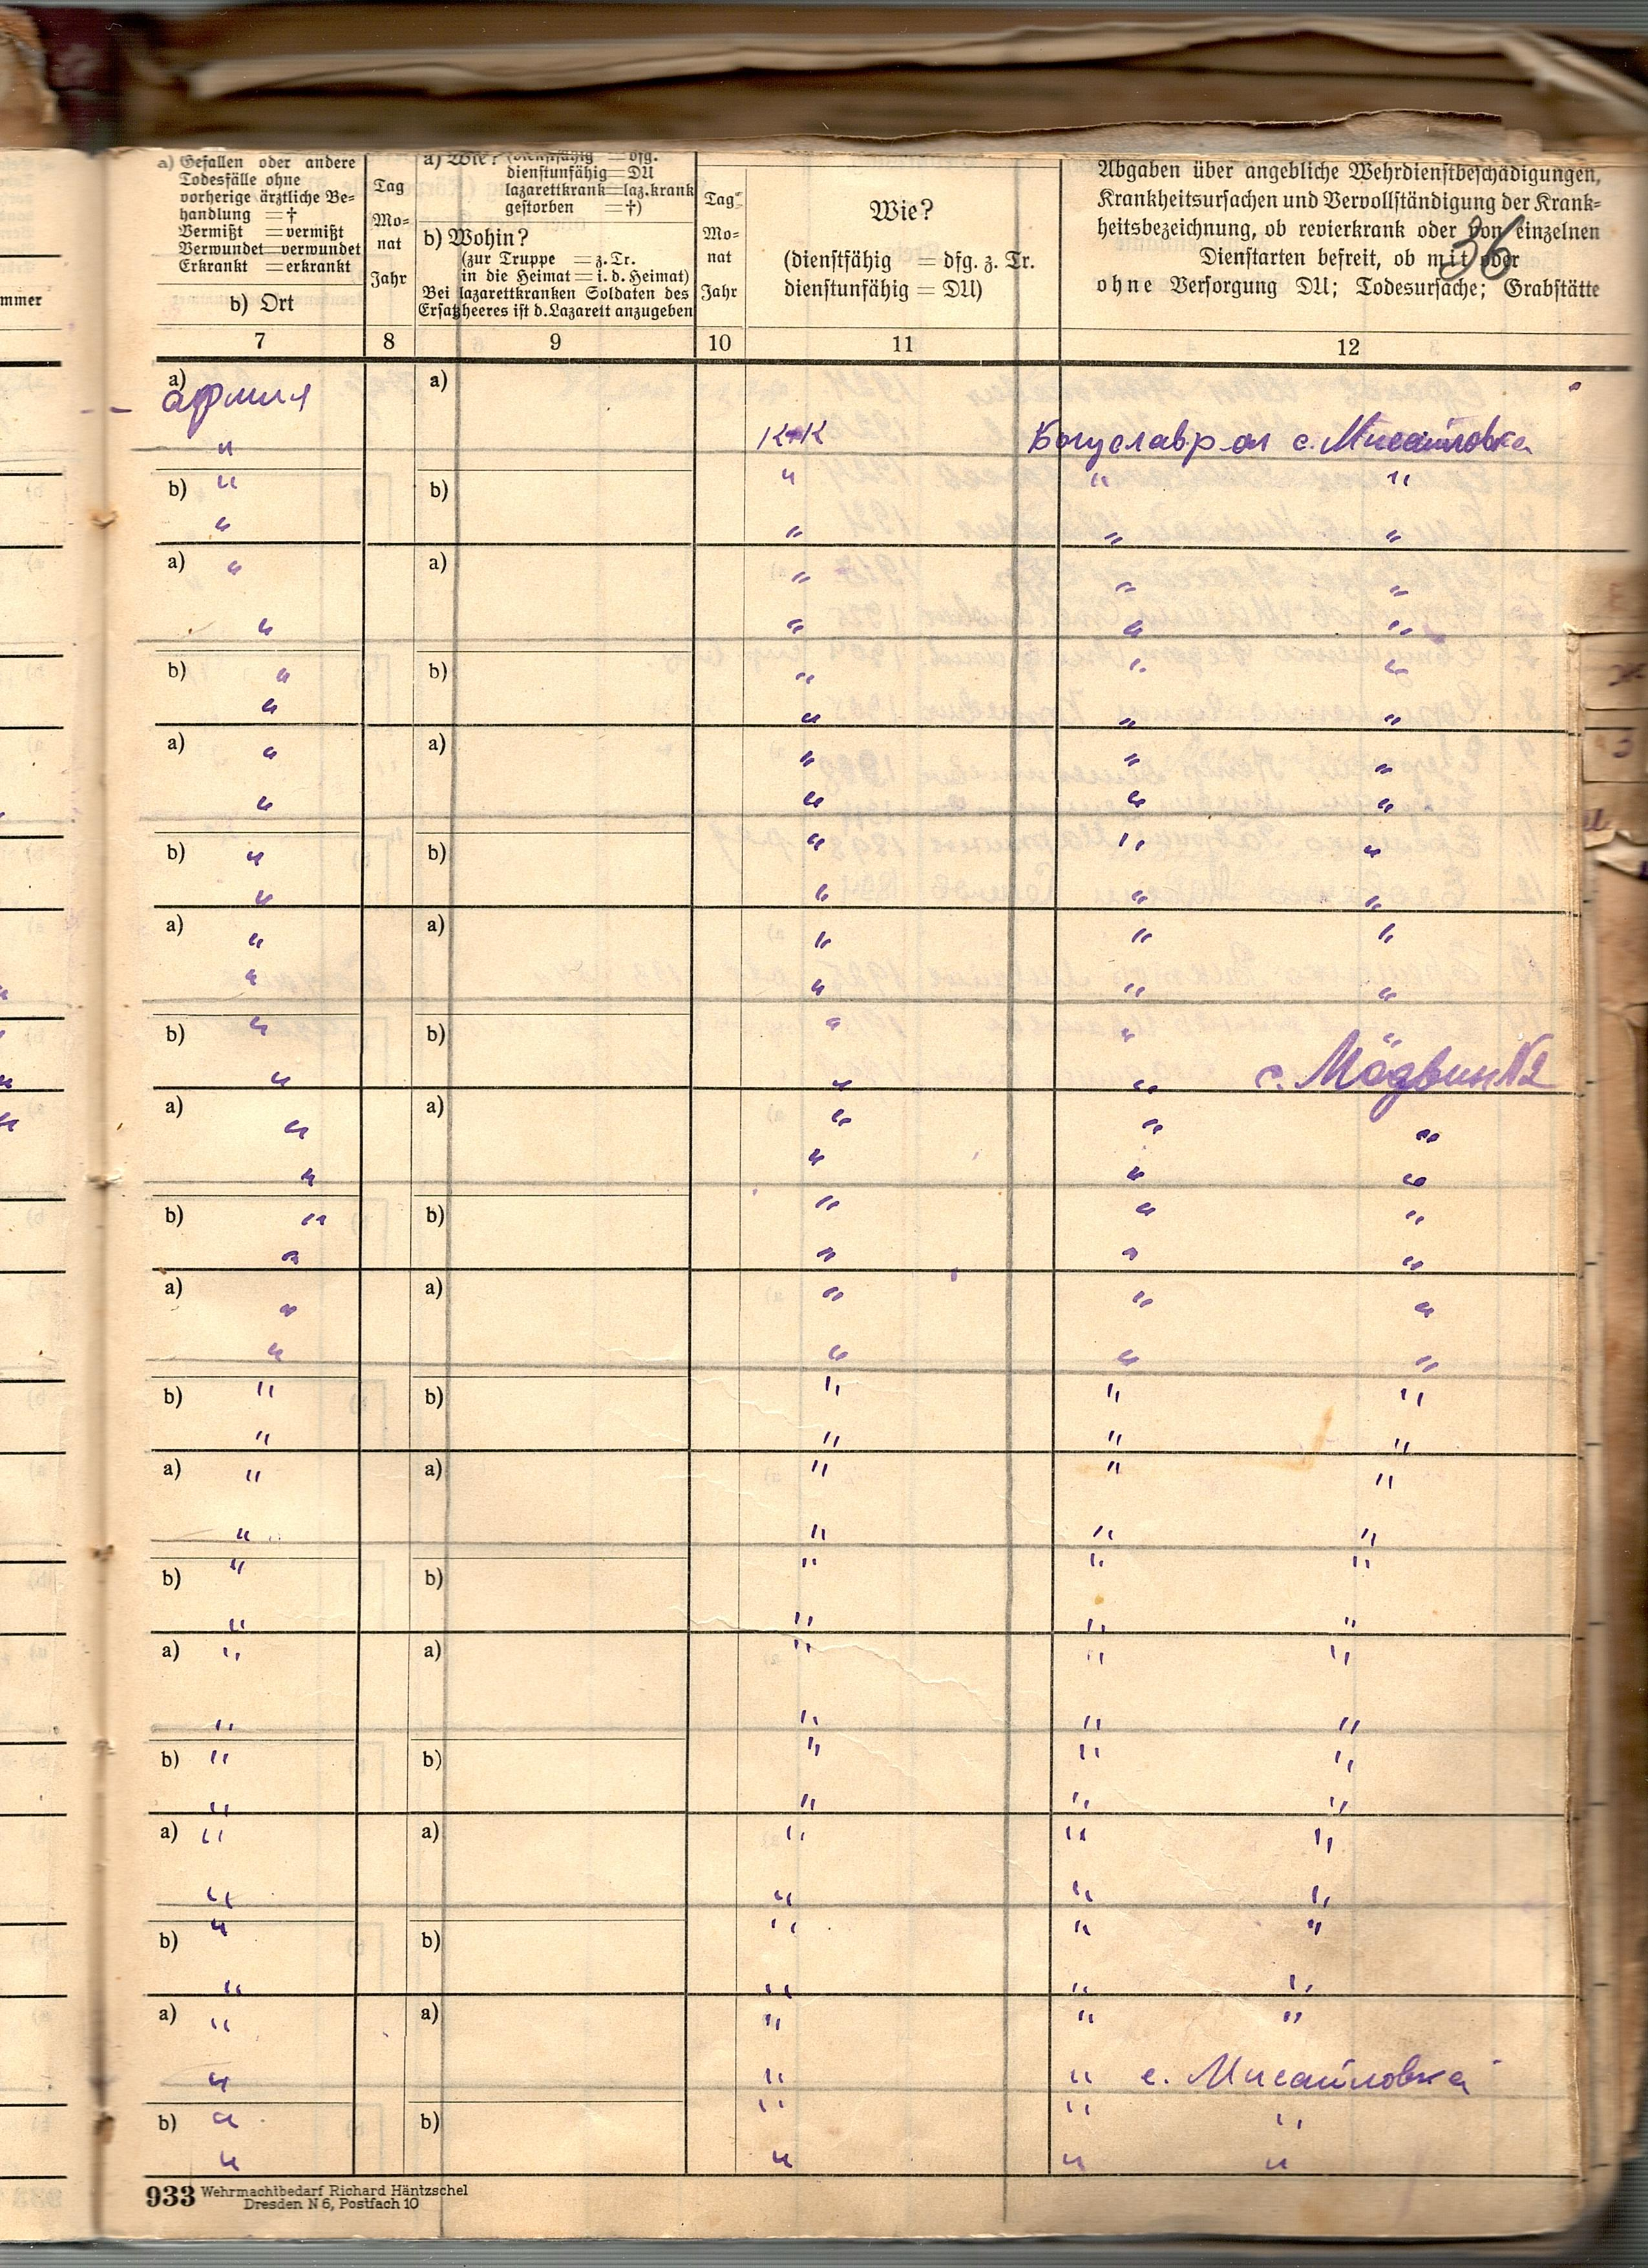 a) Gefallen oder andere
Todesfälle ohne
vorherige ärztliche Be-
handlung = †
Vermißt = vermißt
Verwundet = verwundet
Erkrankt = erkrankt
b) Ort
Tag
Mo-
nat
Jahr
a) Wie? (dienstfähig = dfg.
dienstunfähig = DU
lazarettkrank = laz.krank
gestorben = †)
b) Wohin?
(zur Truppe = z. Tr.
in die Heimat = i. d. Heimat)
Bei lazarettkranken Soldaten des
Ersatzheeres ist d. Lazarett anzugeben
Tag
Mo-
nat
Jahr
Wie?
(dienstfähig = dfg. z. Tr.
dienstunfähig = DU)
Abgaben über angebliche Wehrdienstbeschädigungen,
Krankheitsursachen und Vervollständigung der Krank-
heitsbezeichnung, ob revierkrank oder von einzelnen
Dienstarten befreit, ob mit oder
ohne Versorgung DU; Todesursache; Grabstätte
36
mmer
7 8 9 10 11 12
a) армия a)
" К-К Богуслав р-он с. Мисайловка
b) " b) " " "
" " " "
a) " a) " " "
" " " "
b) " b) " " "
" " " "
a) " a) " " "
" " " "
b) " b) " " "
" " " "
a) " a) " " "
" " " "
b) " b) " " "
" " " с. Мёдвин N2
a) " a) " " "
" " " "
b) " b) " " "
" " " "
a) " a) " " "
" " " "
b) " b) " " "
" " " "
a) " a) " " "
" " " "
b) " b) " " "
" " " "
a) " a) " " "
" " " "
b) " b) " " "
" " " "
a) " a) " " "
" " " "
b) " b) " " "
" " " "
a) " a) " " "
" " " с. Мисайловка
b) " b) " " "
" " " "
933 Wehrmachtbedarf Richard Häntzschel
Dresden N 6, Postfach 10